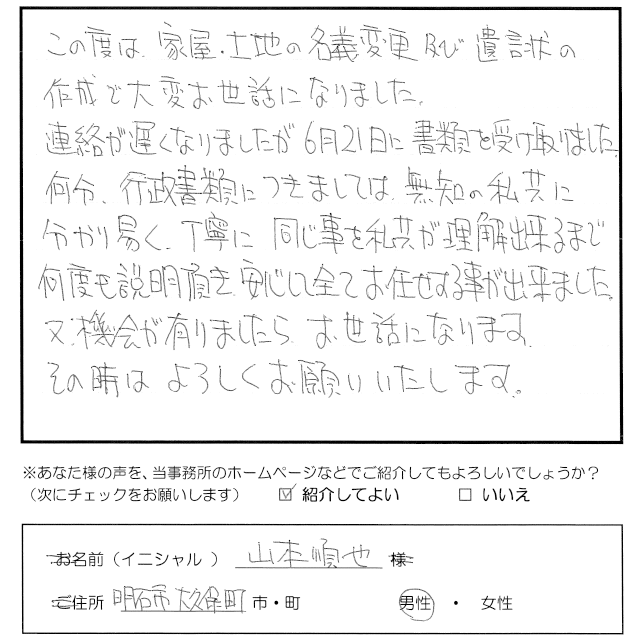 この度は、家屋・土地の名義変更及び遺言状の
作成で大変お世話になりました。
連絡が遅くなりましたが6月21日に書類を受け取りました。
何分、行政書類につきましては、無知の私共に
分かり易く、丁寧に同じ事を私共が理解出来るまで
何度も説明頂き、安心して全てお任せする事が出来ました。
又、機会が有りましたら、お世話になります。
その時はよろしくお願いいたします。
※あなた様の声を、当事務所のホームページなどでご紹介してもよろしいでしょうか？
（次にチェックをお願いします） ☑ 紹介してよい □ いいえ
お名前（イニシャル ） 山本順也 様
ご住所 明石市大久保町 市・町 男性 ・ 女性